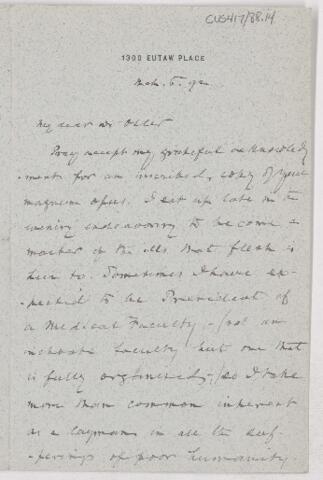 CUS417/88.14
1300 EUTAW PLACE
Mch. 5. 92
My dear Dr Osler
Pray accept my grateful acknowledg
-ments for an inscribed copy of your
magnum opus. I sat up late in the
evening endeavoring to become a
master of the ills that flesh is
heir to. Sometimes I have ex-
-pected to be President of
a Medical Faculty, - (not an
inchoate faculty but one that
is fully organized; - so I take
more than common interest
as a layman in all the suf-
-ferings of poor humanity.